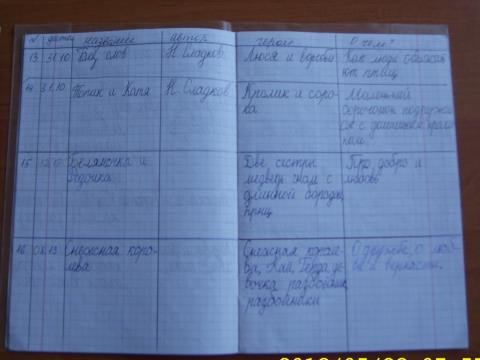 название автор герои О чем?
13. 31.10 Без слов Н. Сладков. Люся и воробьи Как люди обижа-
ют птиц
14 31.10 Топик и Катя Н. Сладков Кролик и соро-
ка Маленький
сорочонок подружил-
ся с домашним кроли-
ком.
15 Беляночка и
Розочка Две сестры
медведь гном с
длинной бородой
принц Про добро и
любовь
16. Снежная коро-
лева Снежная короле-
ва, Кай, Герда, де-
вочка разбойник,
разбойники О дружбе, о люб-
ви и верности.